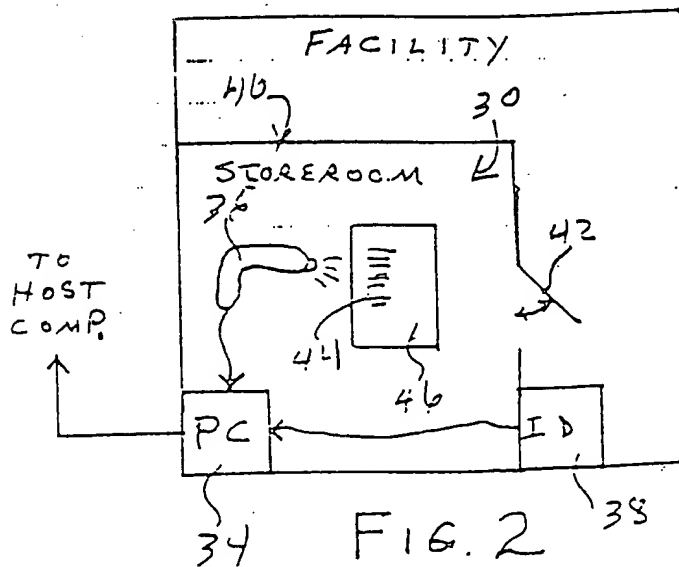 FACILITY
40
30
STOREROOM
36
42
TO
HOST
COMP.
44
46
PC
ID
34
FIG. 2
38